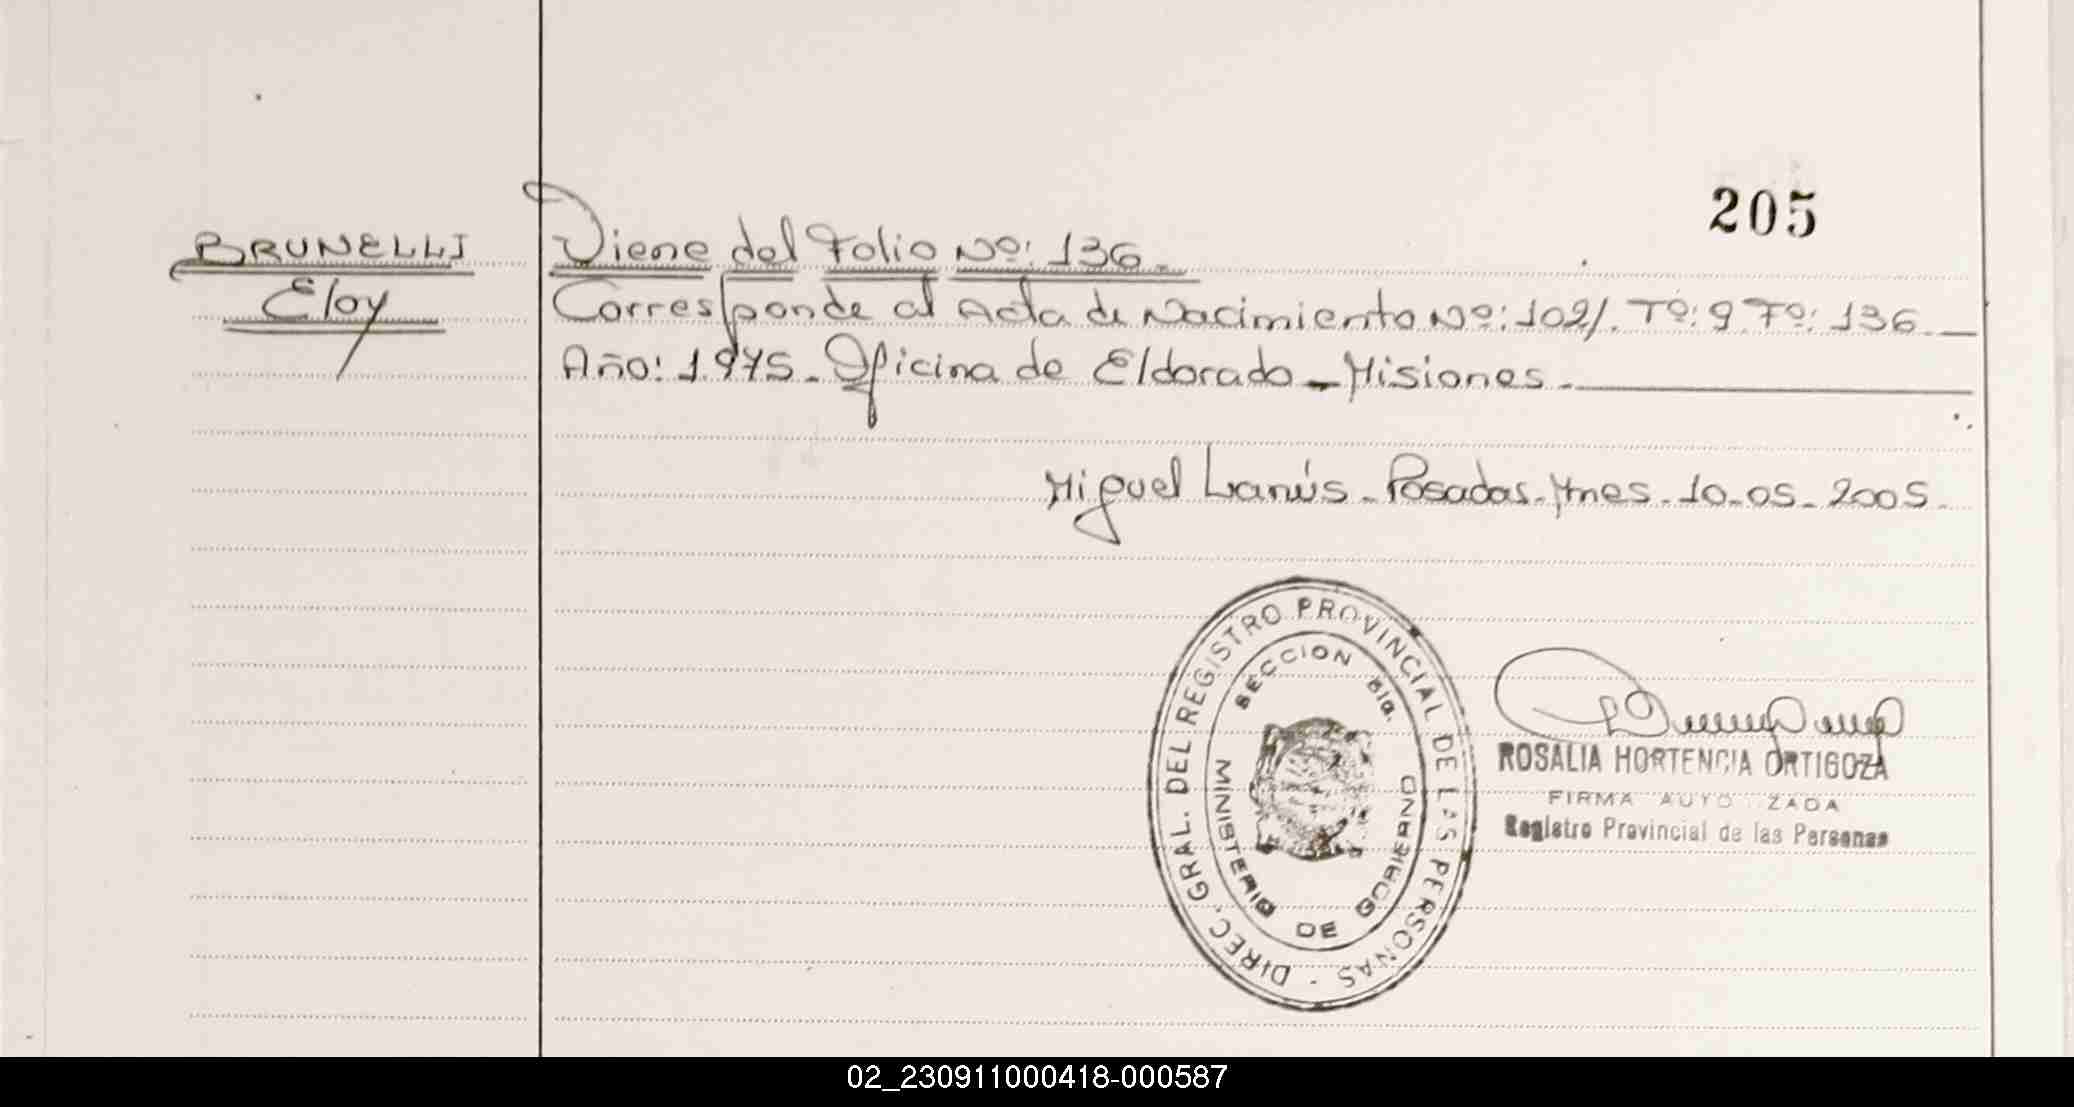 205
BRUNELLI
Eloy
Viene del Folio Nº: 136.
Corresponde al Acta de Nacimiento Nº: 1021. Tº: 9 Fº: 136.
Año: 1975. Oficina de Eldorado - Misiones.
Miguel Lanús - Posadas - Mnes. 10-05-2005.
DIREC. GRAL. DEL REGISTRO PROVINCIAL DE LAS PERSONAS -
SECCION
MINISTERIO DE GOBIERNO
ROSALIA HORTENCIA ORTIGOZA
FIRMA AUTO ZADA
Registro Provincial de las Personas
02_230911000418-000587